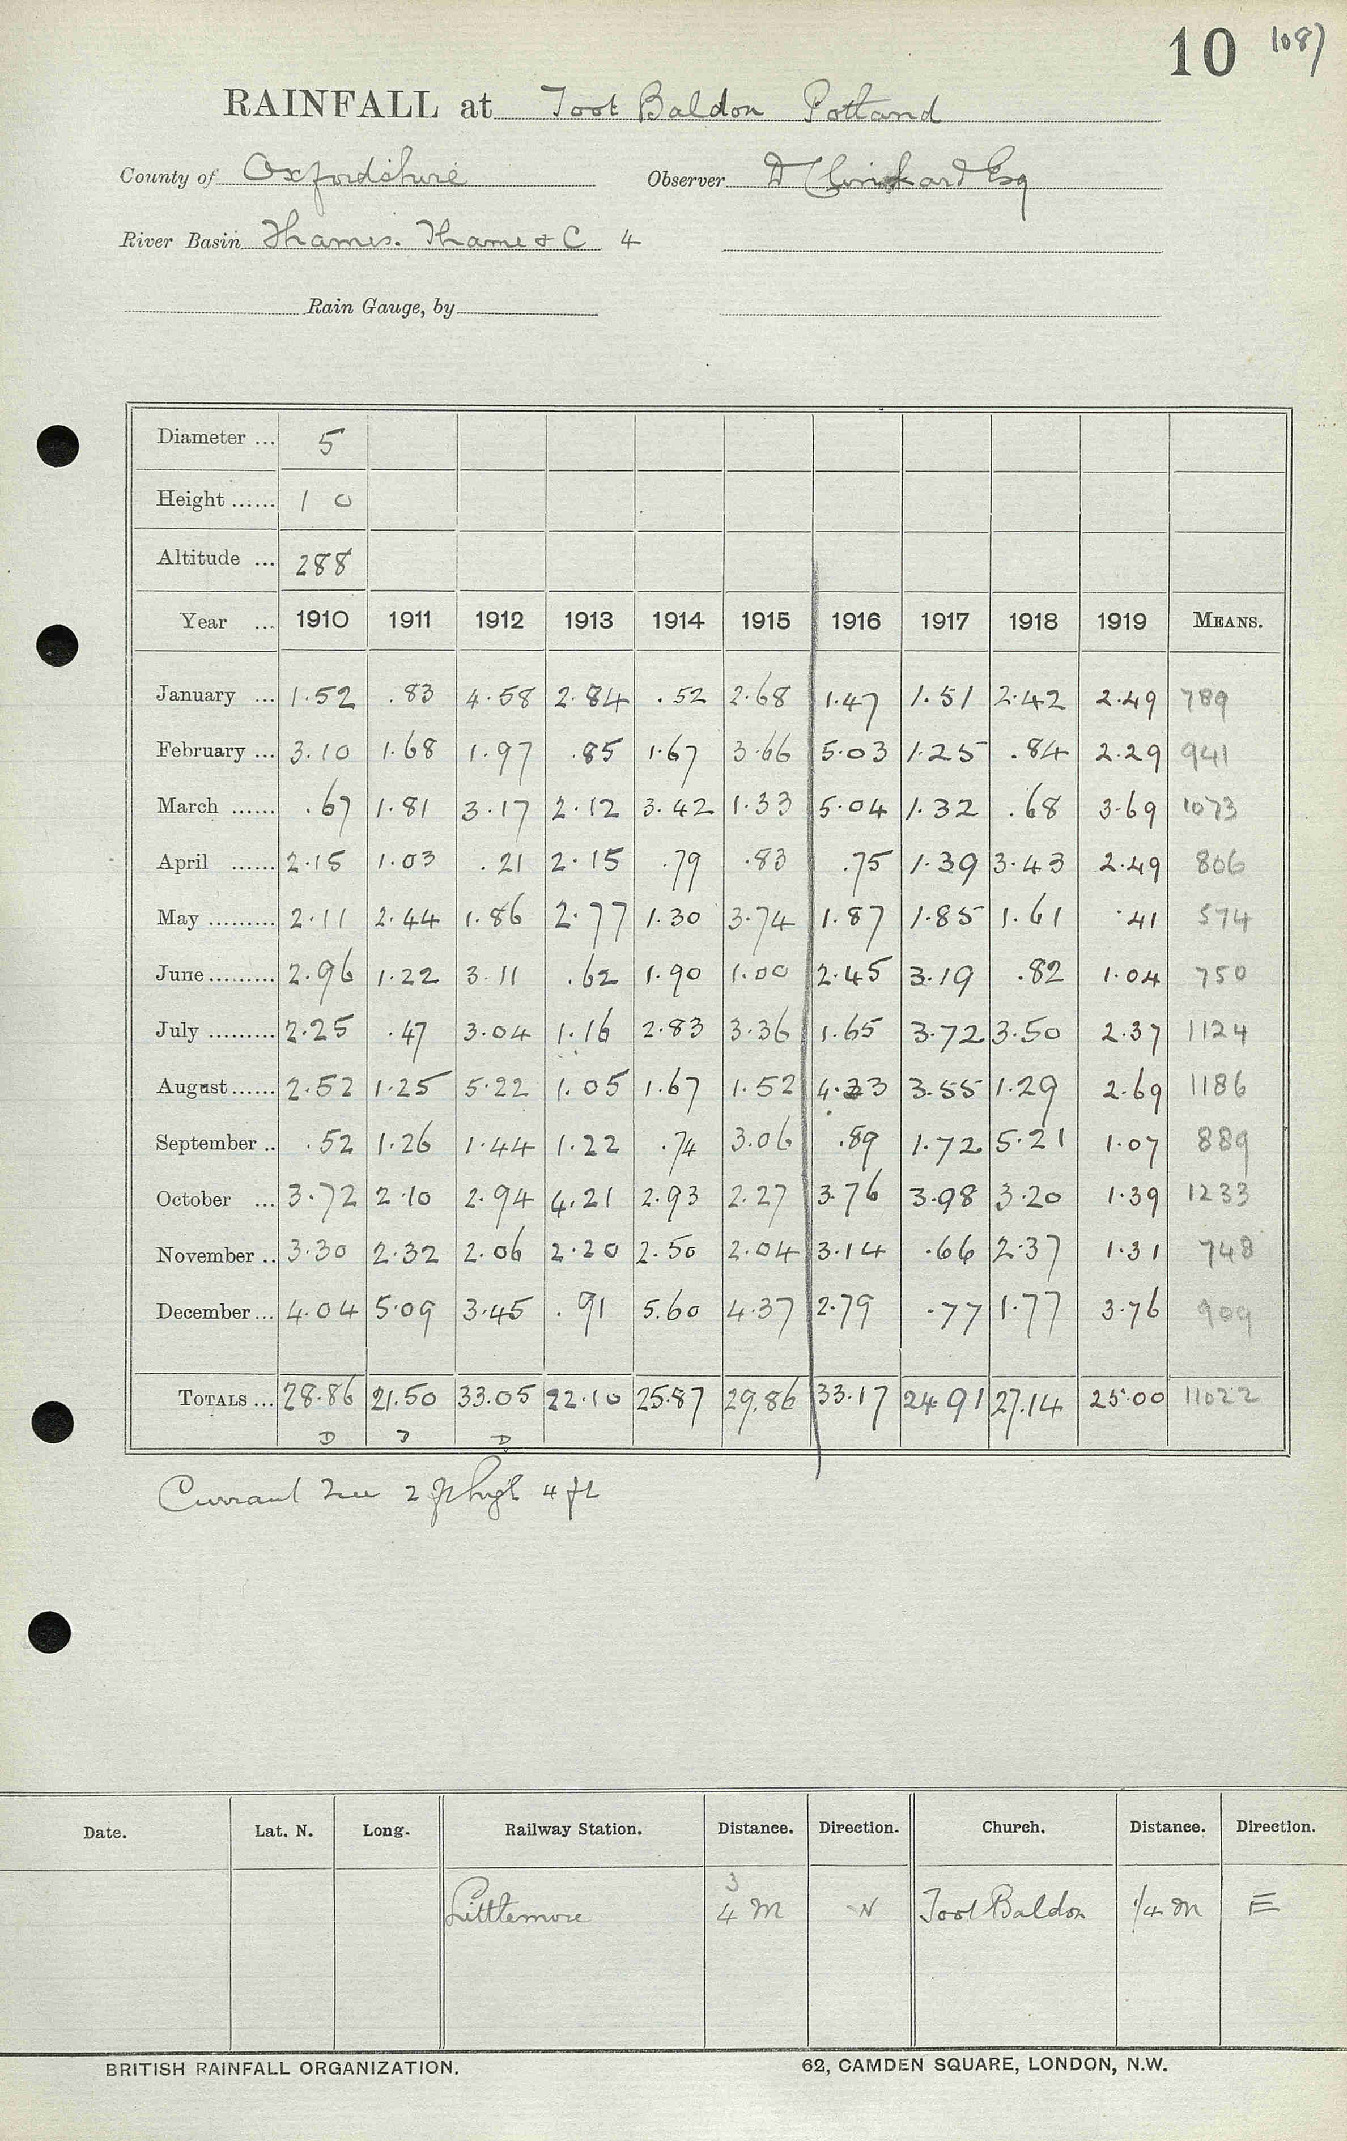 10 1087
RAINFALL at Toot Baldon Potland
County of Oxfordshire Observer D Esq
River Basin Thames. Thame & C 4
Rain Gauge, by
Diameter ... 5
Height ...... 1 0
Altitude ... 288
Year ... 1910 1911 1912 1913 1914 1915 1916 1917 1918 1919 MEANS.
January ... 1.52 .83 4.58 2.84 .52 2.68 1.47 1.51 2.42 2.49 789
February ... 3.10 1.68 1.97 .85 1.67 3.66 5.03 1.25 .84 2.29 941
March ...... .67 1.81 3.17 2.12 3.42 1.33 5.04 1.32 .68 3.69 1073
April ...... 2.15 1.03 .21 2.15 .79 .83 .75 1.39 3.43 2.49 806
May ......... 2.11 2.44 1.86 2.77 1.30 3.74 1.87 1.85 1.61 .41 574
June ......... 2.96 1.22 3.11 .62 1.90 1.00 2.45 3.19 .82 1.04 750
July ......... 2.25 .47 3.04 1.16 2.83 3.36 1.65 3.72 3.50 2.37 1124
August ...... 2.52 1.25 5.22 1.05 1.67 1.52 4.33 3.55 1.29 2.69 1186
September .. .52 1.26 1.44 1.22 .74 3.06 .89 1.72 5.21 1.07 889
October ... 3.72 2.10 2.94 4.21 2.93 2.27 3.76 3.98 3.20 1.39 1233
November .. 3.30 2.32 2.06 2.20 2.50 2.04 3.14 .66 2.37 1.31 748
December ... 4.04 5.09 3.45 .91 5.60 4.37 2.79 .77 1.77 3.76 909
TOTALS ... 28.86 21.50 33.05 22.10 25.87 29.86 33.17 24.91 27.14 25.00 11022
D D D
Currant Tree 2 ft high 4 ft
Date. Lat. N. Long. Railway Station. Distance. Direction. Church. Distance. Direction.
3
Littlemore 4 M N Toot Baldon 1/4 M E
BRITISH RAINFALL ORGANIZATION. 62, CAMDEN SQUARE, LONDON, N.W.